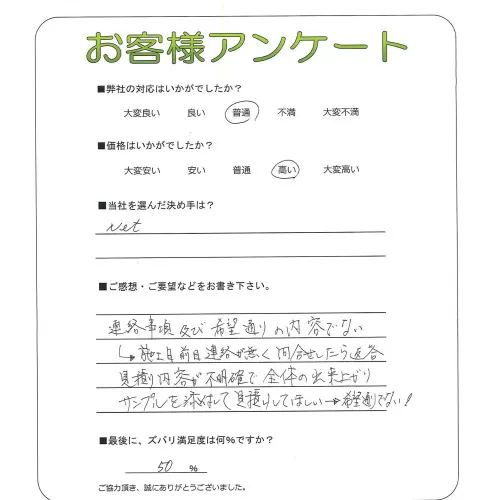 お客様アンケート
■弊社の対応はいかがでしたか？
大変良い 良い 普通 不満 大変不満
■価格はいかがでしたか？
大変安い 安い 普通 高い 大変高い
■当社を選んだ決め手は？
net
■ご感想・ご要望などをお書き下さい。
連絡事項及び希望通りの内容でない
↳施工日前日連絡が無く問合せしたら返答
見積り内容が不明確で全体の出来上がり
サンプルを添付して見積りしてほしい→希望通りでない！
■最後に、ズバリ満足度は何%ですか？
50 %
ご協力頂き、誠にありがとうございました。